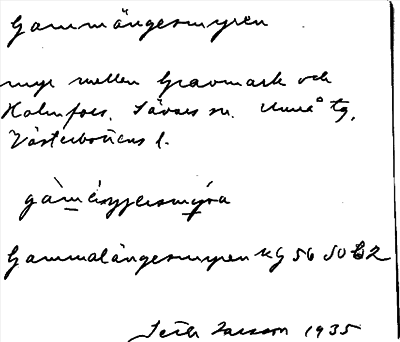 Gammängesmyren
myr mellan Gravmark och
Holmfors, Sävars sn. Umeå tg,
Västerbottens l.
Gammalängesmyren KG 56 50 B2
Seth Larsson 1935